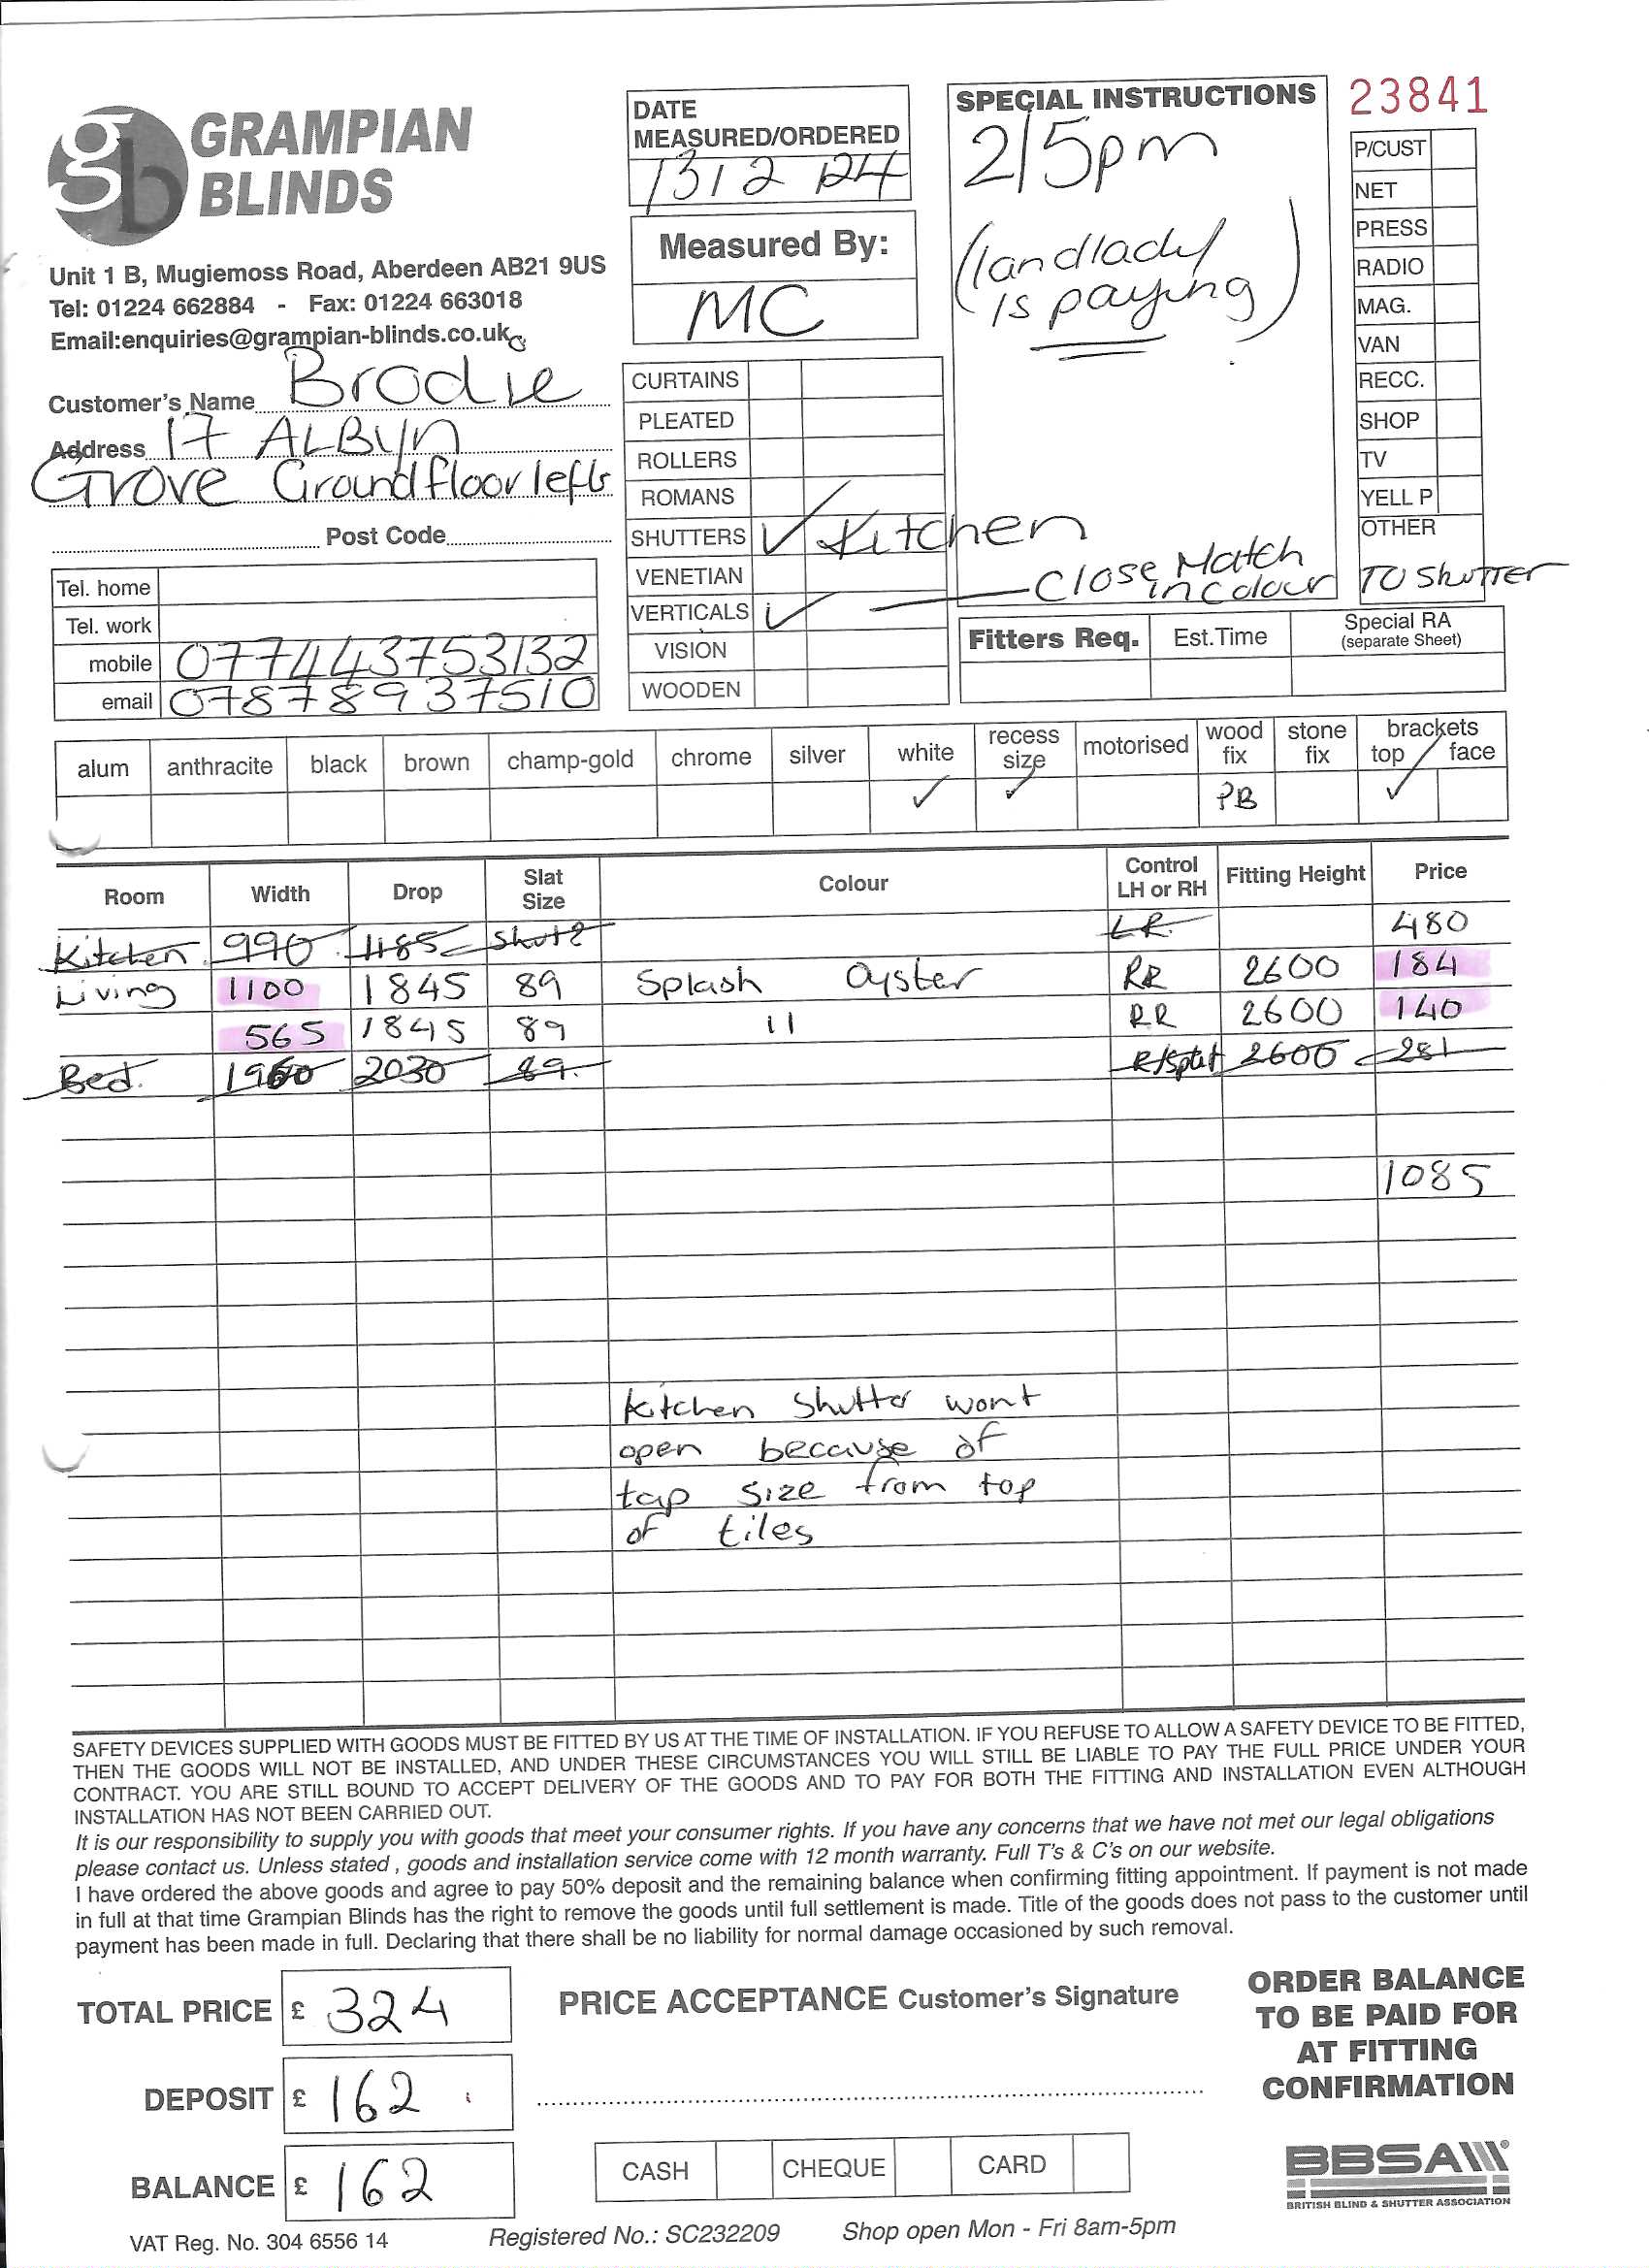 GRAMPIAN
BLINDS
Unit 1 B, Mugiemoss Road, Aberdeen AB21 9US
Tel: 01224 662884 - Fax: 01224 663018
Email:enquiries@grampian-blinds.co.uk
Customer's Name Brodie
Address 17 ALBYN
Grove Ground floor left
Post Code
Tel. home
Tel. work
mobile 077443753132
email 07878937510
DATE
MEASURED/ORDERED
13/2/24
Measured By:
MC
CURTAINS
PLEATED
ROLLERS
ROMANS
SHUTTERS ✓ Kitchen
VENETIAN
VERTICALS ✓ — Close Match in Colour TO SHUTTER
VISION
WOODEN
SPECIAL INSTRUCTIONS
2/5pm
(landlady
is paying)
23841
P/CUST
NET
PRESS
RADIO
MAG.
VAN
RECC.
SHOP
TV
YELL P
OTHER
Fitters Req. Est.Time Special RA
(separate Sheet)
alum anthracite black brown champ-gold chrome silver white recess size motorised wood fix stone fix brackets top / face
✓ ✓ PB ✓
Room Width Drop Slat Size Colour Control LH or RH Fitting Height Price
Kitchen 990 1185 Shut LR 480
Living 1100 1845 89 Splash Oyster RR 2600 184
565 1845 89 11 RR 2600 140
Bed. 1960 2030 89. R/Split 2600 281
1085
Kitchen Shutter wont
open because of
tap size from top
of tiles
SAFETY DEVICES SUPPLIED WITH GOODS MUST BE FITTED BY US AT THE TIME OF INSTALLATION. IF YOU REFUSE TO ALLOW A SAFETY DEVICE TO BE FITTED,
THEN THE GOODS WILL NOT BE INSTALLED, AND UNDER THESE CIRCUMSTANCES YOU WILL STILL BE LIABLE TO PAY THE FULL PRICE UNDER YOUR
CONTRACT. YOU ARE STILL BOUND TO ACCEPT DELIVERY OF THE GOODS AND TO PAY FOR BOTH THE FITTING AND INSTALLATION EVEN ALTHOUGH
INSTALLATION HAS NOT BEEN CARRIED OUT.
It is our responsibility to supply you with goods that meet your consumer rights. If you have any concerns that we have not met our legal obligations
please contact us. Unless stated , goods and installation service come with 12 month warranty. Full T's & C's on our website.
I have ordered the above goods and agree to pay 50% deposit and the remaining balance when confirming fitting appointment. If payment is not made
in full at that time Grampian Blinds has the right to remove the goods until full settlement is made. Title of the goods does not pass to the customer until
payment has been made in full. Declaring that there shall be no liability for normal damage occasioned by such removal.
TOTAL PRICE £ 324
DEPOSIT £ 162
BALANCE £ 162
PRICE ACCEPTANCE Customer's Signature
CASH CHEQUE CARD
ORDER BALANCE
TO BE PAID FOR
AT FITTING
CONFIRMATION
BBSA
BRITISH BLIND & SHUTTER ASSOCIATION
VAT Reg. No. 304 6556 14 Registered No.: SC232209 Shop open Mon - Fri 8am-5pm